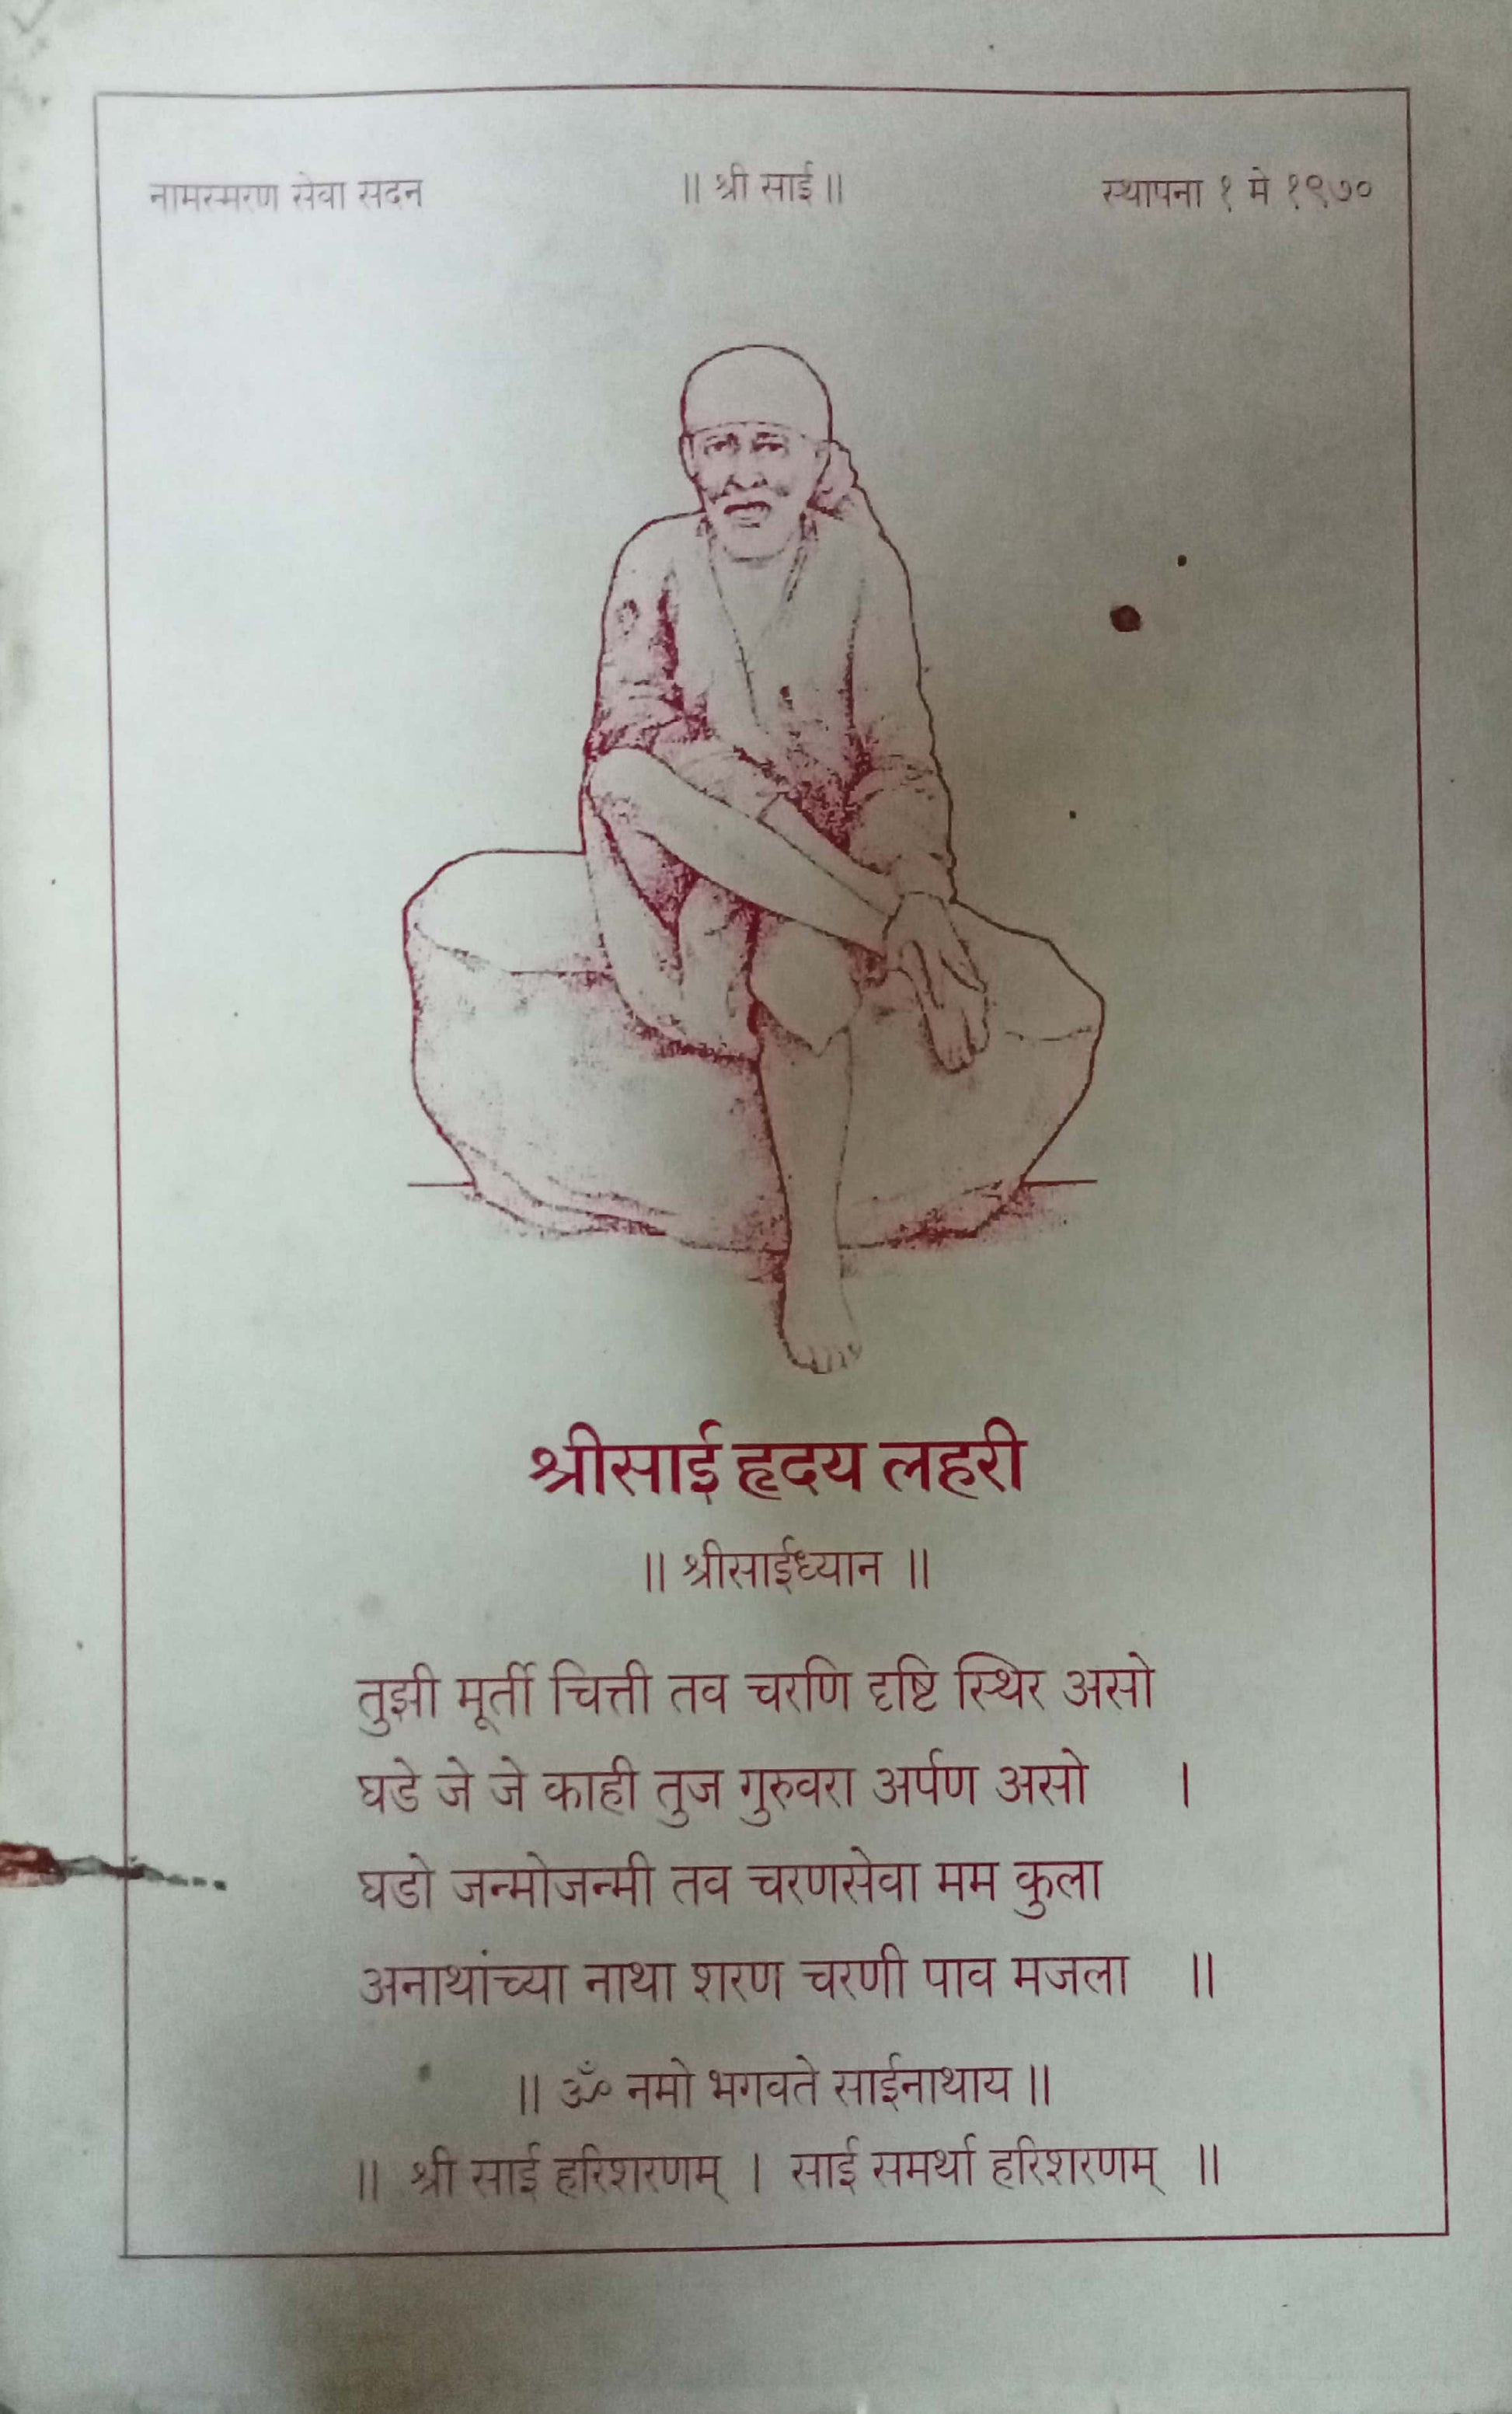 नामस्मरण सेवा सदन
॥ श्री साई ॥
स्थापना १ मे १९७०
श्रीसाई हृदय लहरी
॥ श्रीसाईध्यान ॥
तुझी मूर्ती चित्ती तव चरणि दृष्टि स्थिर असो
घडे जे जे काही तुज गुरुवरा अर्पण असो ।
घडो जन्मोजन्मी तव चरणसेवा मम कुला
अनाथांच्या नाथा शरण चरणी पाव मजला ॥
॥ ॐ नमो भगवते साईनाथाय ॥
॥ श्री साई हरिशरणम् । साई समर्था हरिशरणम् ॥